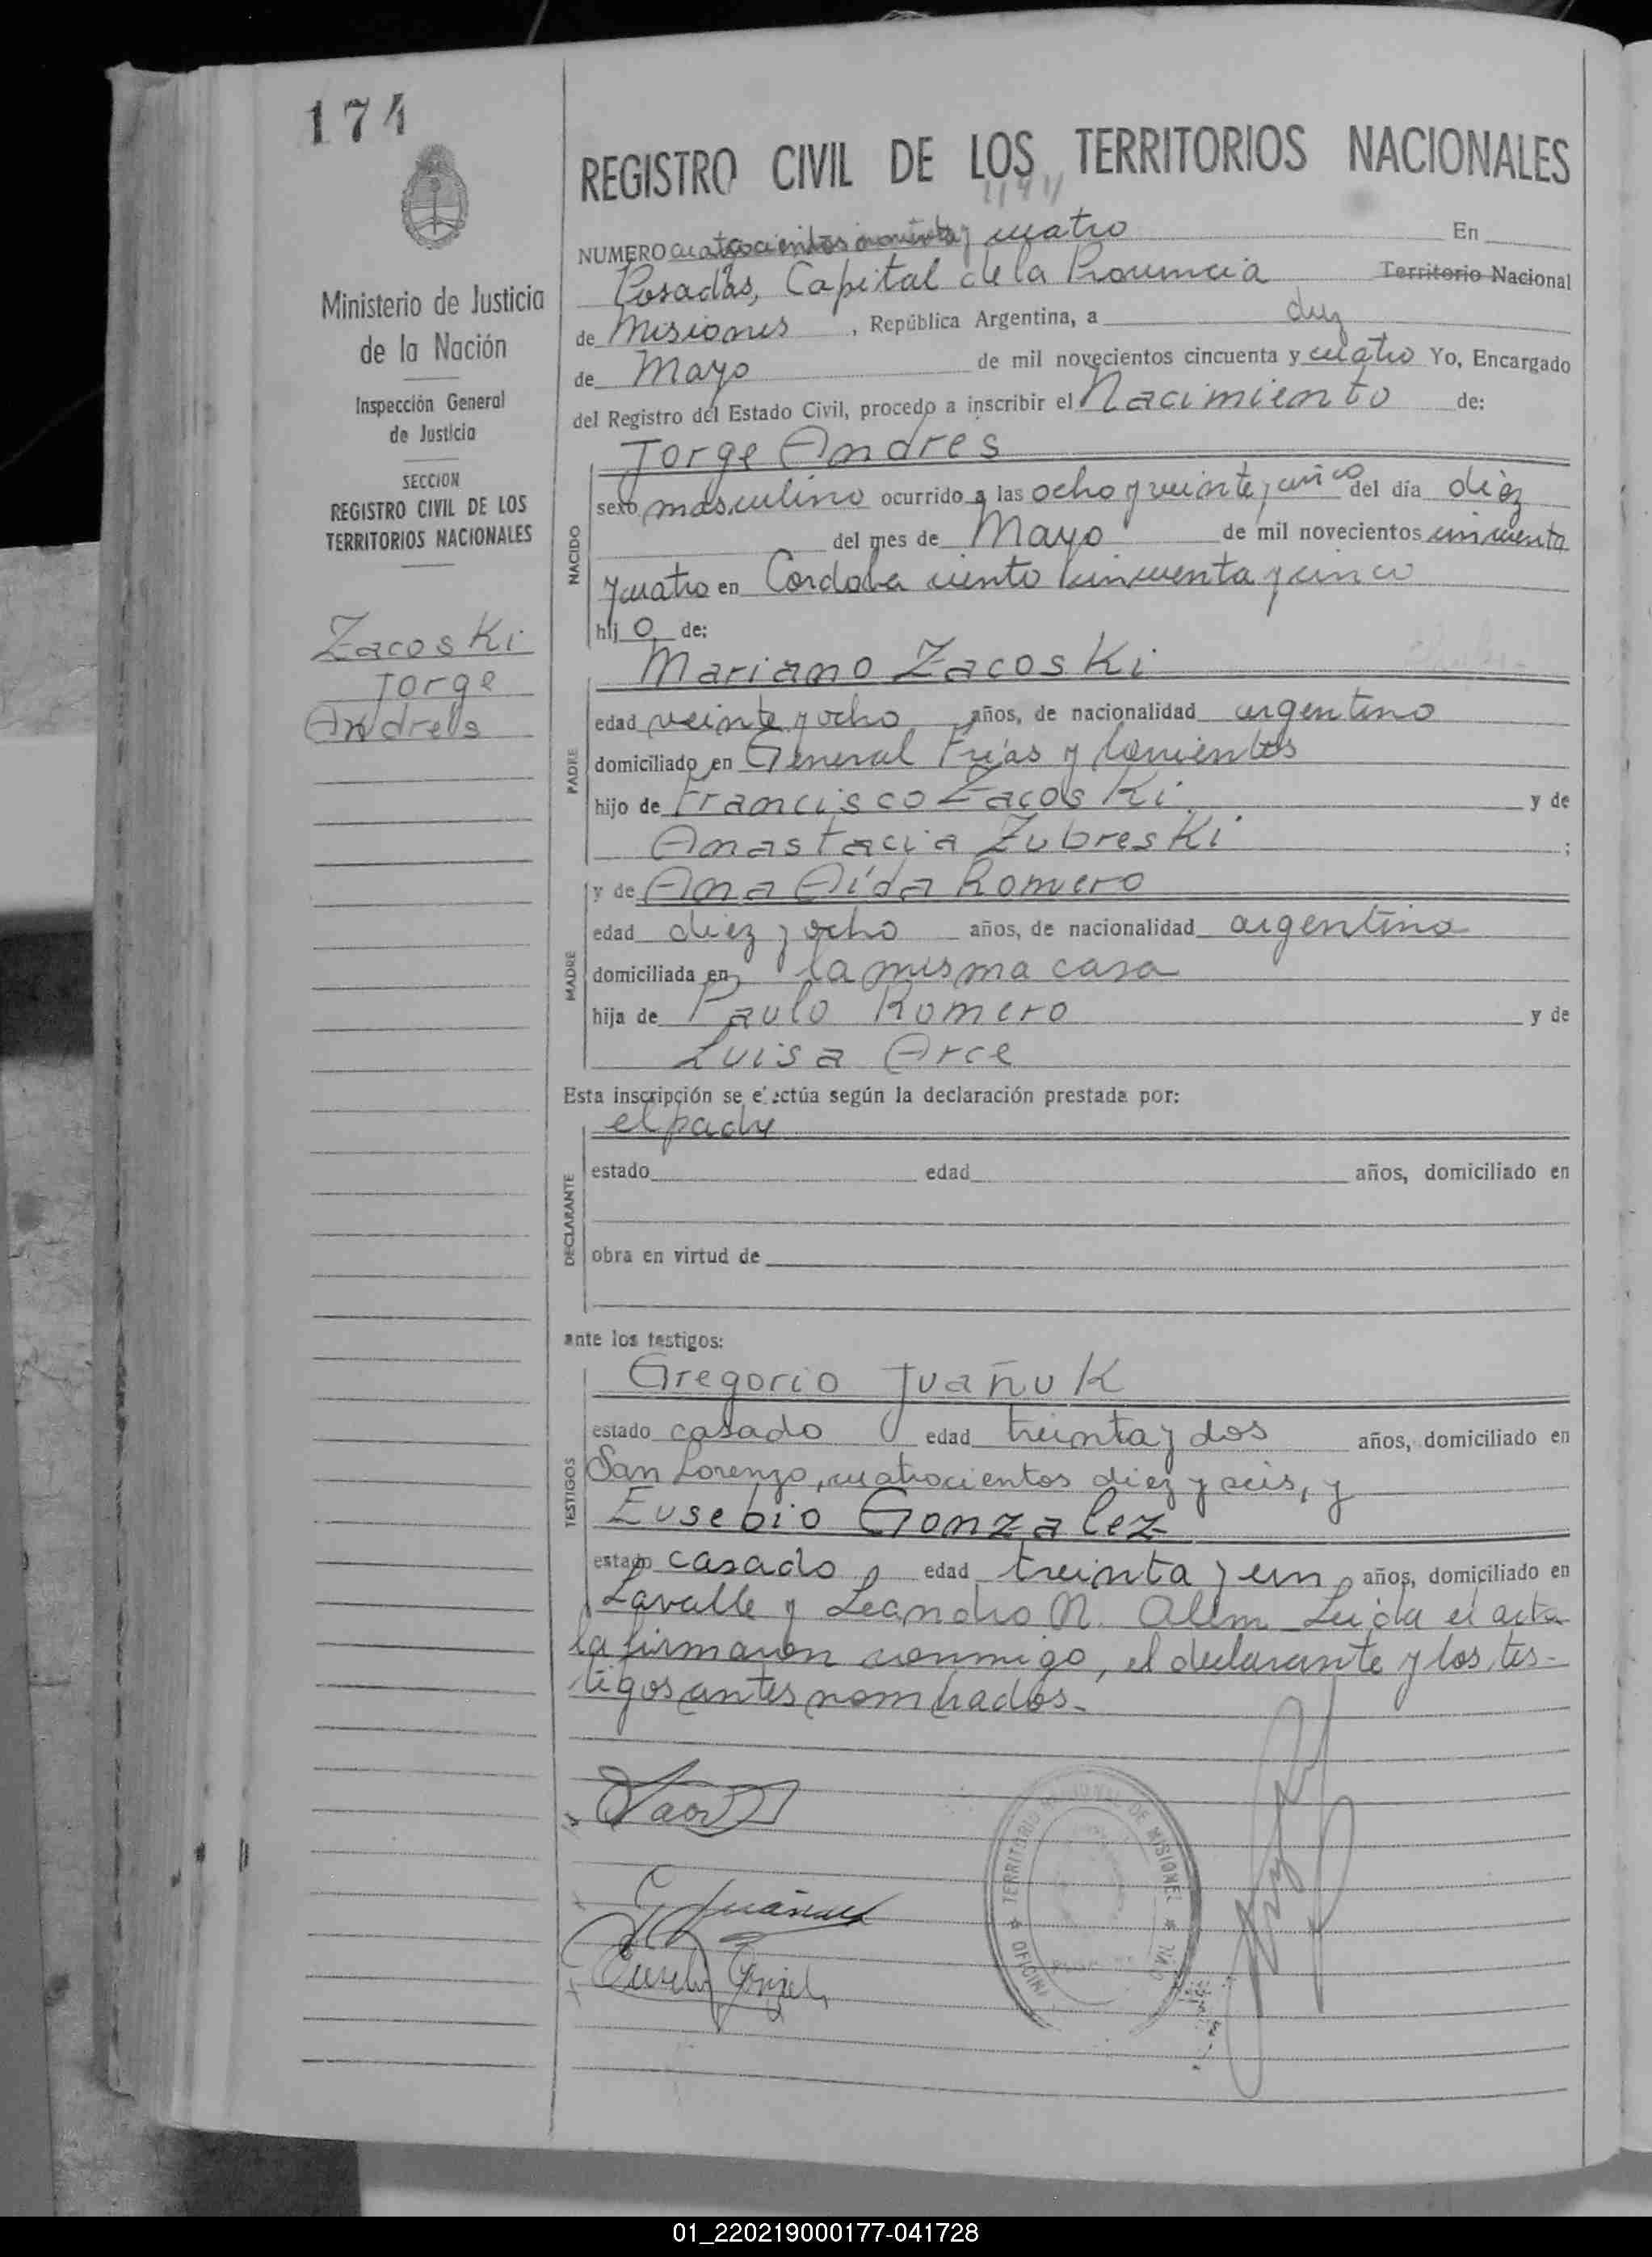 174
REGISTRO CIVIL DE LOS TERRITORIOS NACIONALES
Ministerio de Justicia
de la Nación
Inspección General
de Justicia
SECCION
REGISTRO CIVIL DE LOS
TERRITORIOS NACIONALES
Zacoski
Jorge
Andrés
NUMERO cuatrocientos noventa y cuatro En
Posadas, Capital de la Provincia Territorio Nacional
de Misiones, República Argentina, a diez
de Mayo de mil novecientos cincuenta y cuatro Yo, Encargado
del Registro del Estado Civil, procedo a inscribir el Nacimiento de:
NACIDO
Jorge Andres
sexo masculino ocurrido a las ocho y veinte y cinco del día diez
del mes de Mayo de mil novecientos cincuenta
y cuatro en Cordoba ciento cincuenta y cinco
hij o de:
PADRE
Mariano Zacoski
edad veinte y ocho años, de nacionalidad argentino
domiciliado en General Frías y Corrientes
hijo de Francisco Zacoski y de
Anastacia Zubreski ;
MADRE
y de Ana Aída Romero
edad diez y ocho años, de nacionalidad argentina
domiciliada en la misma casa
hija de Paulo Romero y de
Luisa Arce
Esta inscripción se efectúa según la declaración prestada por:
DECLARANTE
el padre
estado edad años, domiciliado en
obra en virtud de
ante los testigos:
TESTIGOS
Gregorio Juañuk
estado casado edad treinta y dos años, domiciliado en
San Lorenzo, cuatrocientos diez y seis, y
Eusebio Gonzalez
estado casado edad treinta y un años, domiciliado en
Lavalle y Leandro N. Alem Leida el acta
la firmaron conmigo, el declarante y los tes-
tigos antes nombrados.
TERRITORIO NACIONAL DE MISIONES
OFICINA
CIVIL
01_220219000177-041728